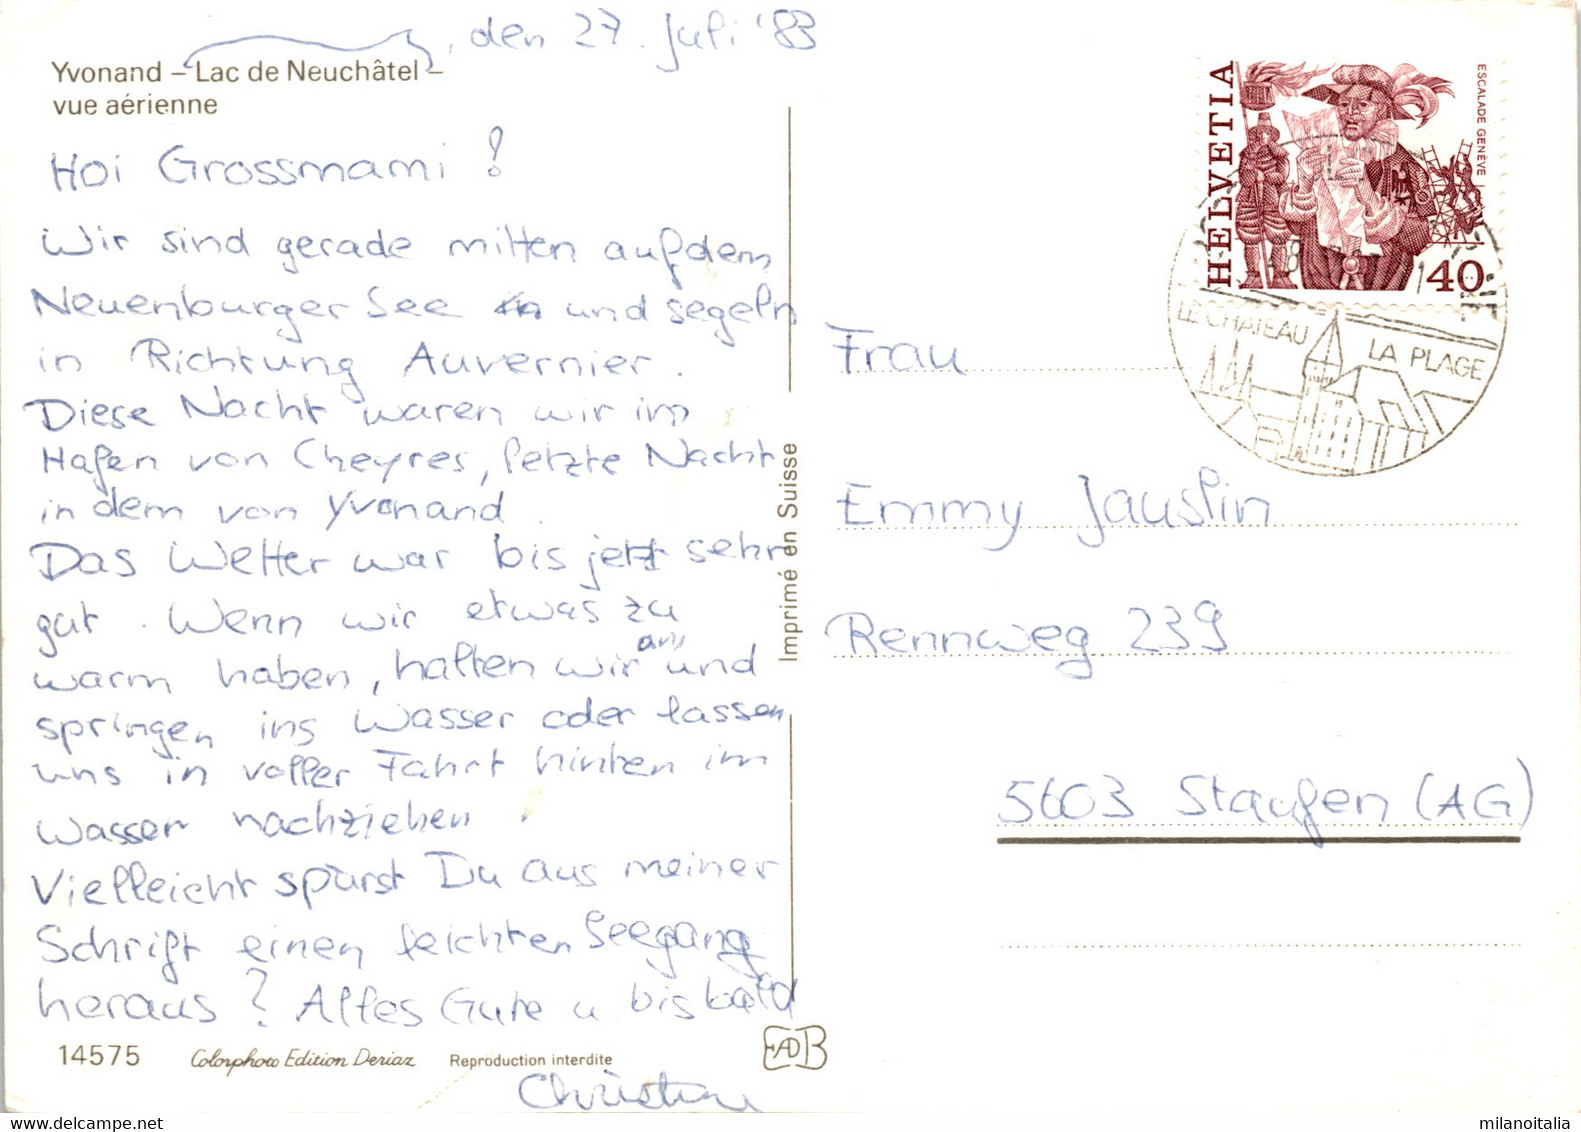 , den 27. Juli '83
Yvonand – Lac de Neuchâtel –
vue aérienne
Hoi Grossmami!
Wir sind gerade mitten auf dem
Neuenburger See und segeln
in Richtung Auvernier.
Diese Nacht waren wir im
Hafen von Cheyres, letzte Nacht
in dem von Yvonand.
Das Wetter war bis jetzt sehr
gut. Wenn wir etwas zu
warm haben, halten wir an und
springen ins Wasser oder lassen
uns in voller Fahrt hinten im
Wasser nachziehen.
Vielleicht spürst Du aus meiner
Schrift einen leichten Seegang
heraus? Alles Gute u bis bald
14575 Colorphoto Edition Deriaz Reproduction interdite
EADB
Imprimé en Suisse
HELVETIA
ESCALADE GENÈVE
40
LE CHATEAU
LA PLAGE
Frau
Emmy Jauslin
Rennweg 239
5603 Staufen (AG)
milanoitalia